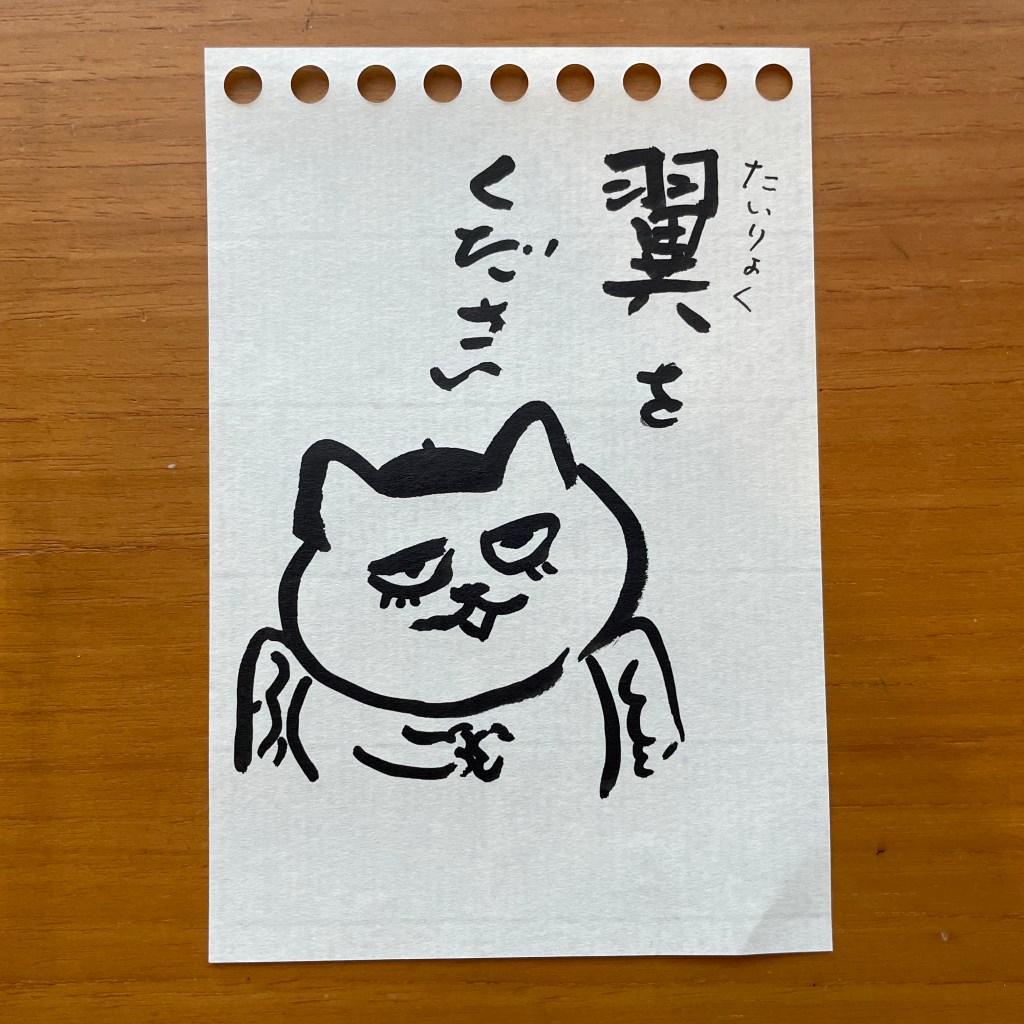 たいりょく
翼を
ください